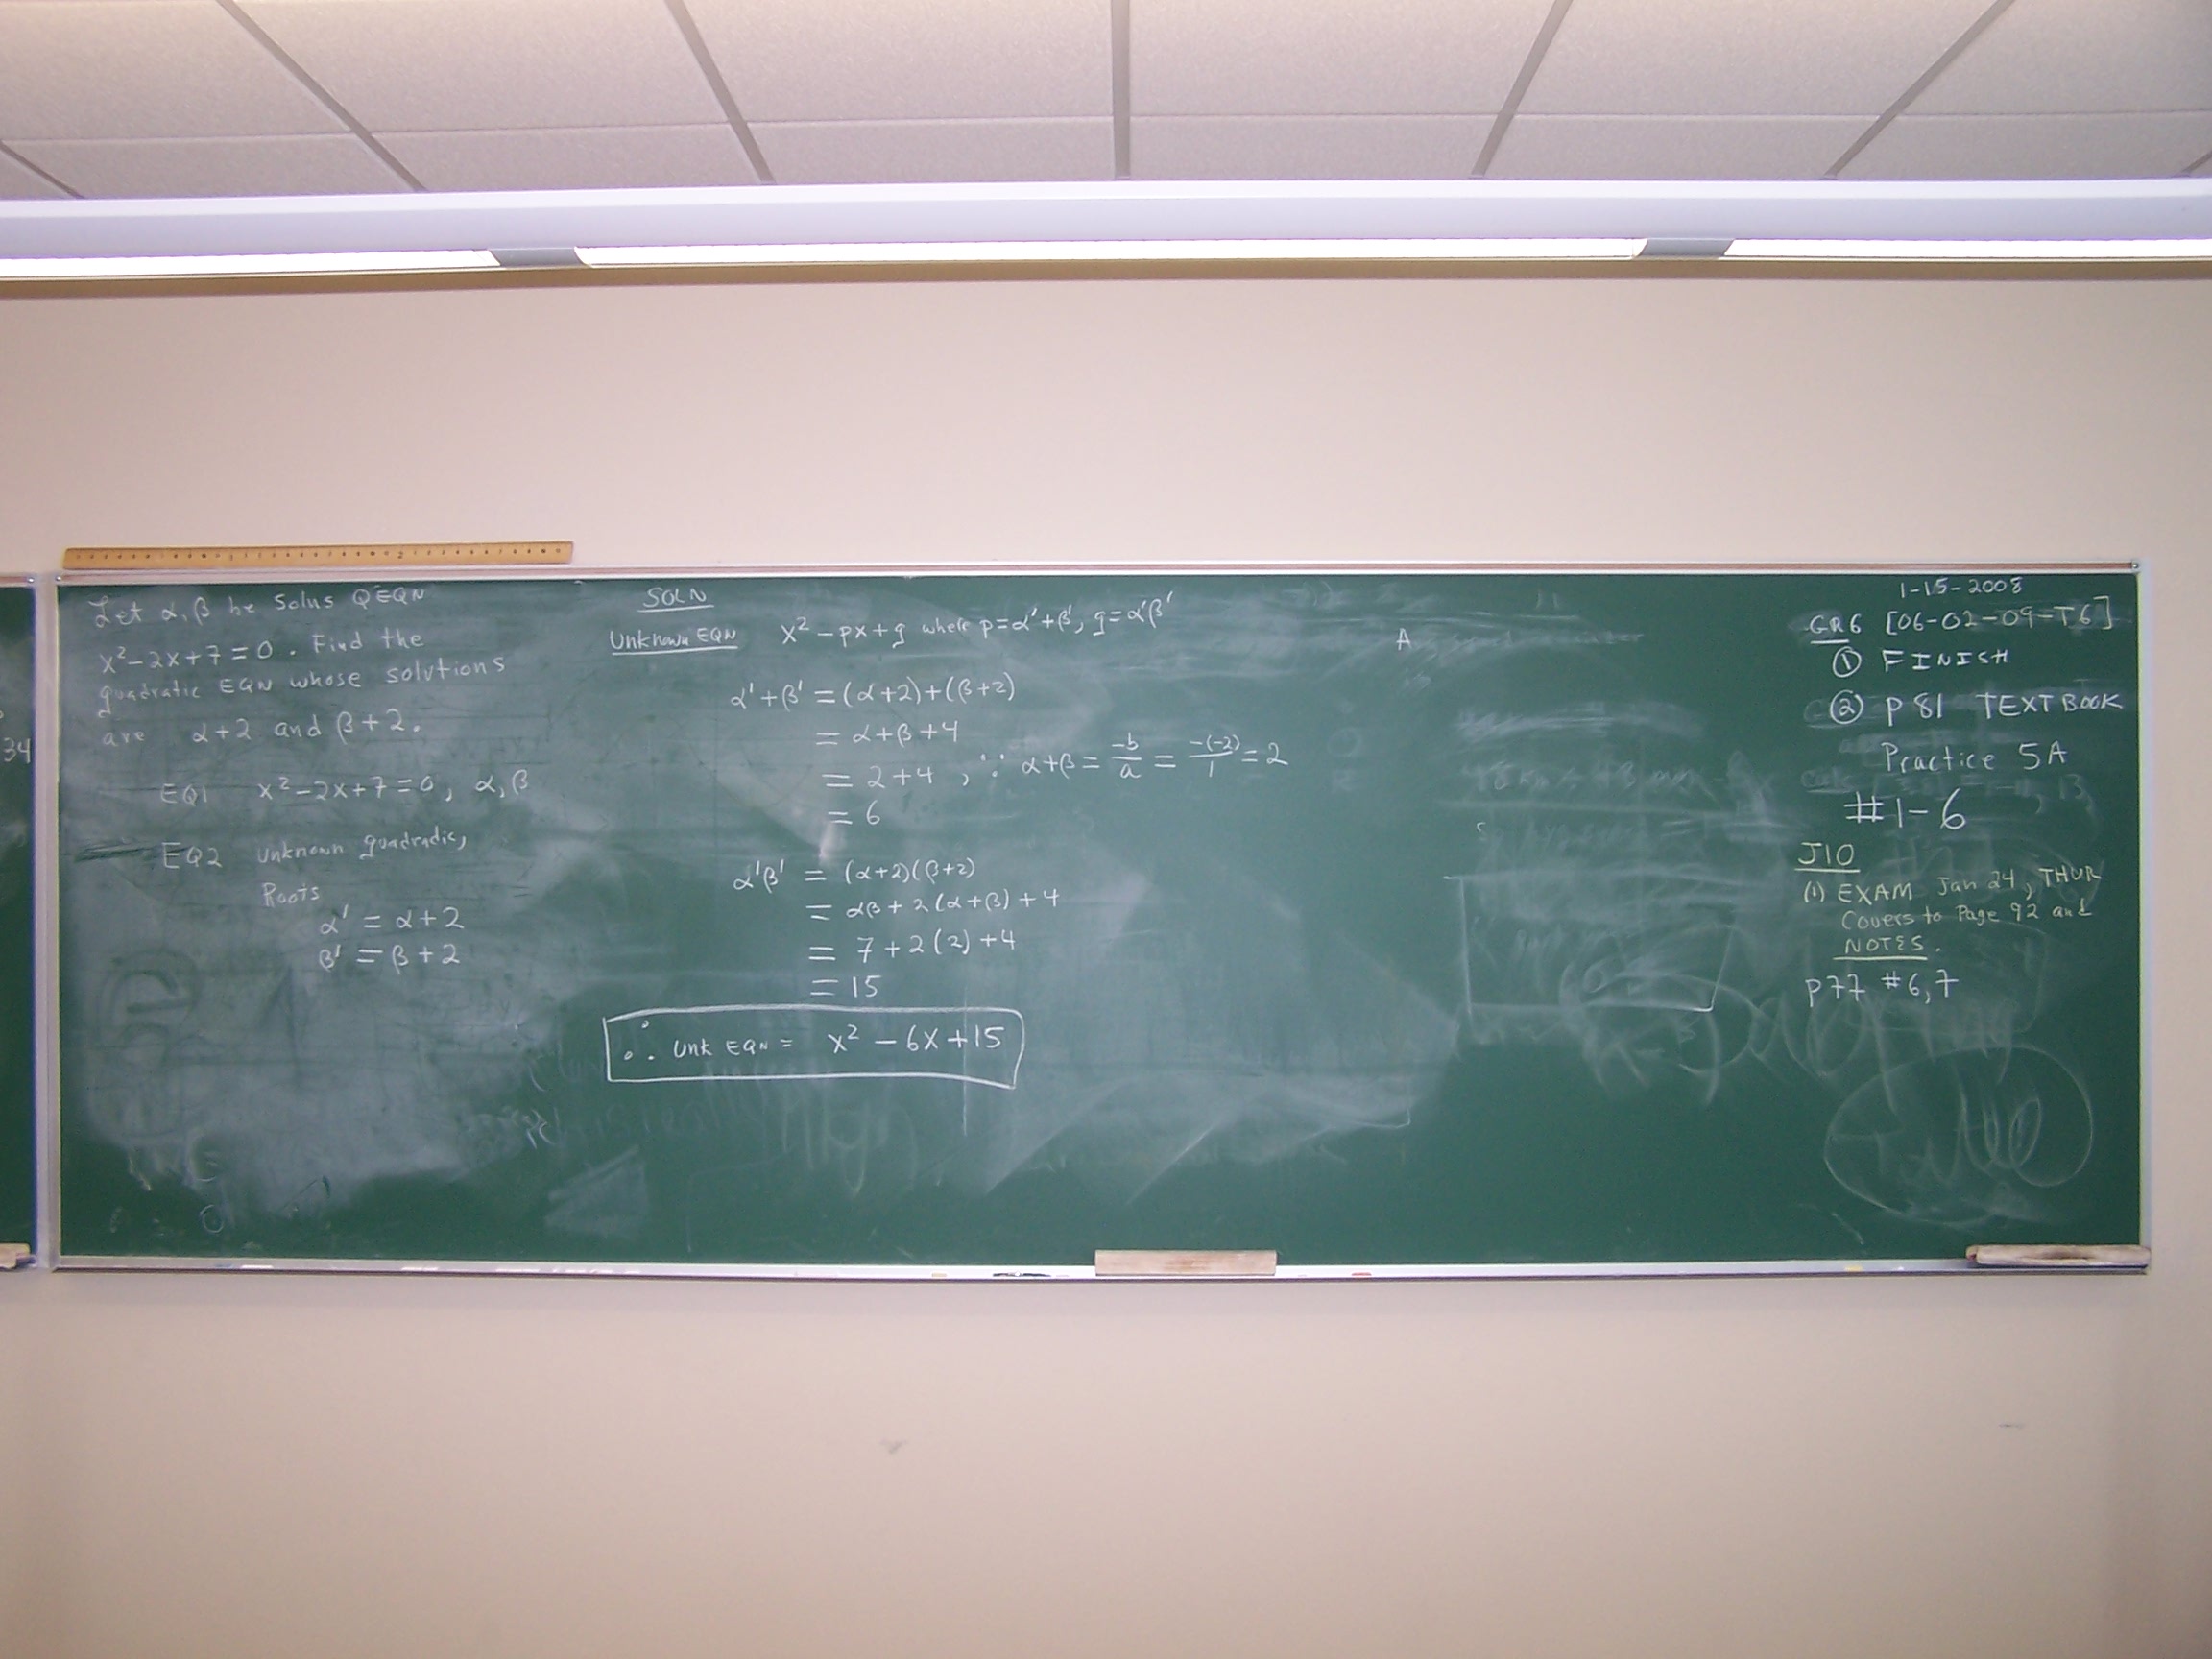 Let α, β be Solns QEQN
x² − 2x + 7 = 0 . Find the
quadratic EQN whose solutions
are α+2 and β+2.
EQ1 x² − 2x + 7 = 0 , α, β
EQ2 unknown quadradic,
Roots
α' = α+2
β' = β+2
SOLN
Unknown EQN x² − px + q where p = α' + β', q = α'β'
α' + β' = (α+2)+(β+2)
= α+β+4
= 2+4 , ∵ α+β = -b/a = -(-2)/1 = 2
= 6
α'β' = (α+2)(β+2)
= αβ + 2(α+β) + 4
= 7 + 2(2) + 4
= 15
∴ Unk EQN = x² − 6x + 15
A
1-15-2008
GR6 [06-02-09-T6]
① FINISH
② P 81 TEXTBOOK
Practice 5A
#1-6
J10
(1) EXAM Jan 24, THUR
Covers to Page 92 and
NOTES.
P77 #6,7
34